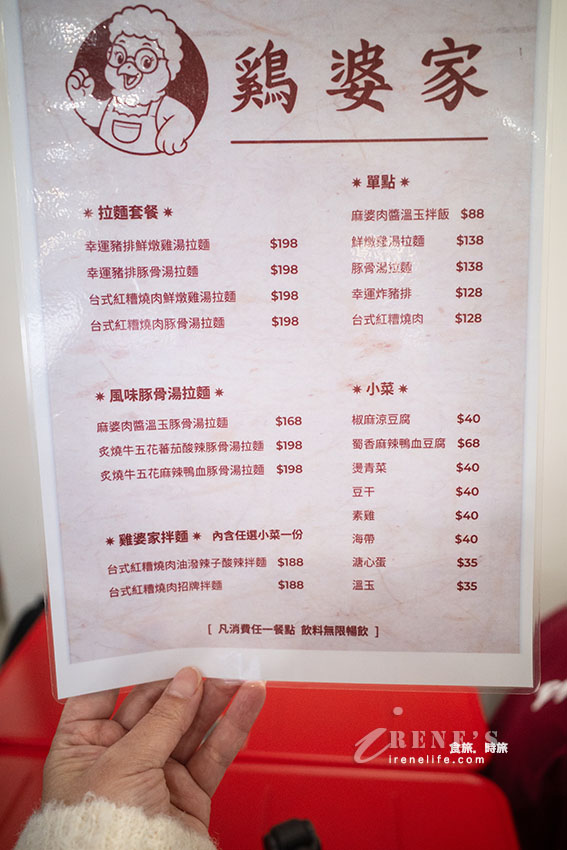 鷄婆家
✷ 拉麵套餐 ✷
幸運豬排鮮燉雞湯拉麵 $198
幸運豬排豚骨湯拉麵 $198
台式紅糟燒肉鮮燉雞湯拉麵 $198
台式紅糟燒肉豚骨湯拉麵 $198
✷ 風味豚骨湯拉麵 ✷
麻婆肉醬溫玉豚骨湯拉麵 $168
炙燒牛五花蕃茄酸辣豚骨湯拉麵 $198
炙燒牛五花麻辣鴨血豚骨湯拉麵 $198
✷ 雞婆家拌麵 ✷ 內含任選小菜一份
台式紅糟燒肉油潑辣子酸辣拌麵 $188
台式紅糟燒肉招牌拌麵 $188
✷ 單點 ✷
麻婆肉醬溫玉拌飯 $88
鮮燉雞湯拉麵 $138
豚骨湯拉麵 $138
幸運炸豬排 $128
台式紅糟燒肉 $128
✷ 小菜 ✷
椒麻涼豆腐 $40
蜀香麻辣鴨血豆腐 $68
燙青菜 $40
豆干 $40
素雞 $40
海帶 $40
溏心蛋 $35
溫玉 $35
[ 凡消費任一餐點 飲料無限暢飲 ]
iRENE'S 食旅。時旅
irenelife.com